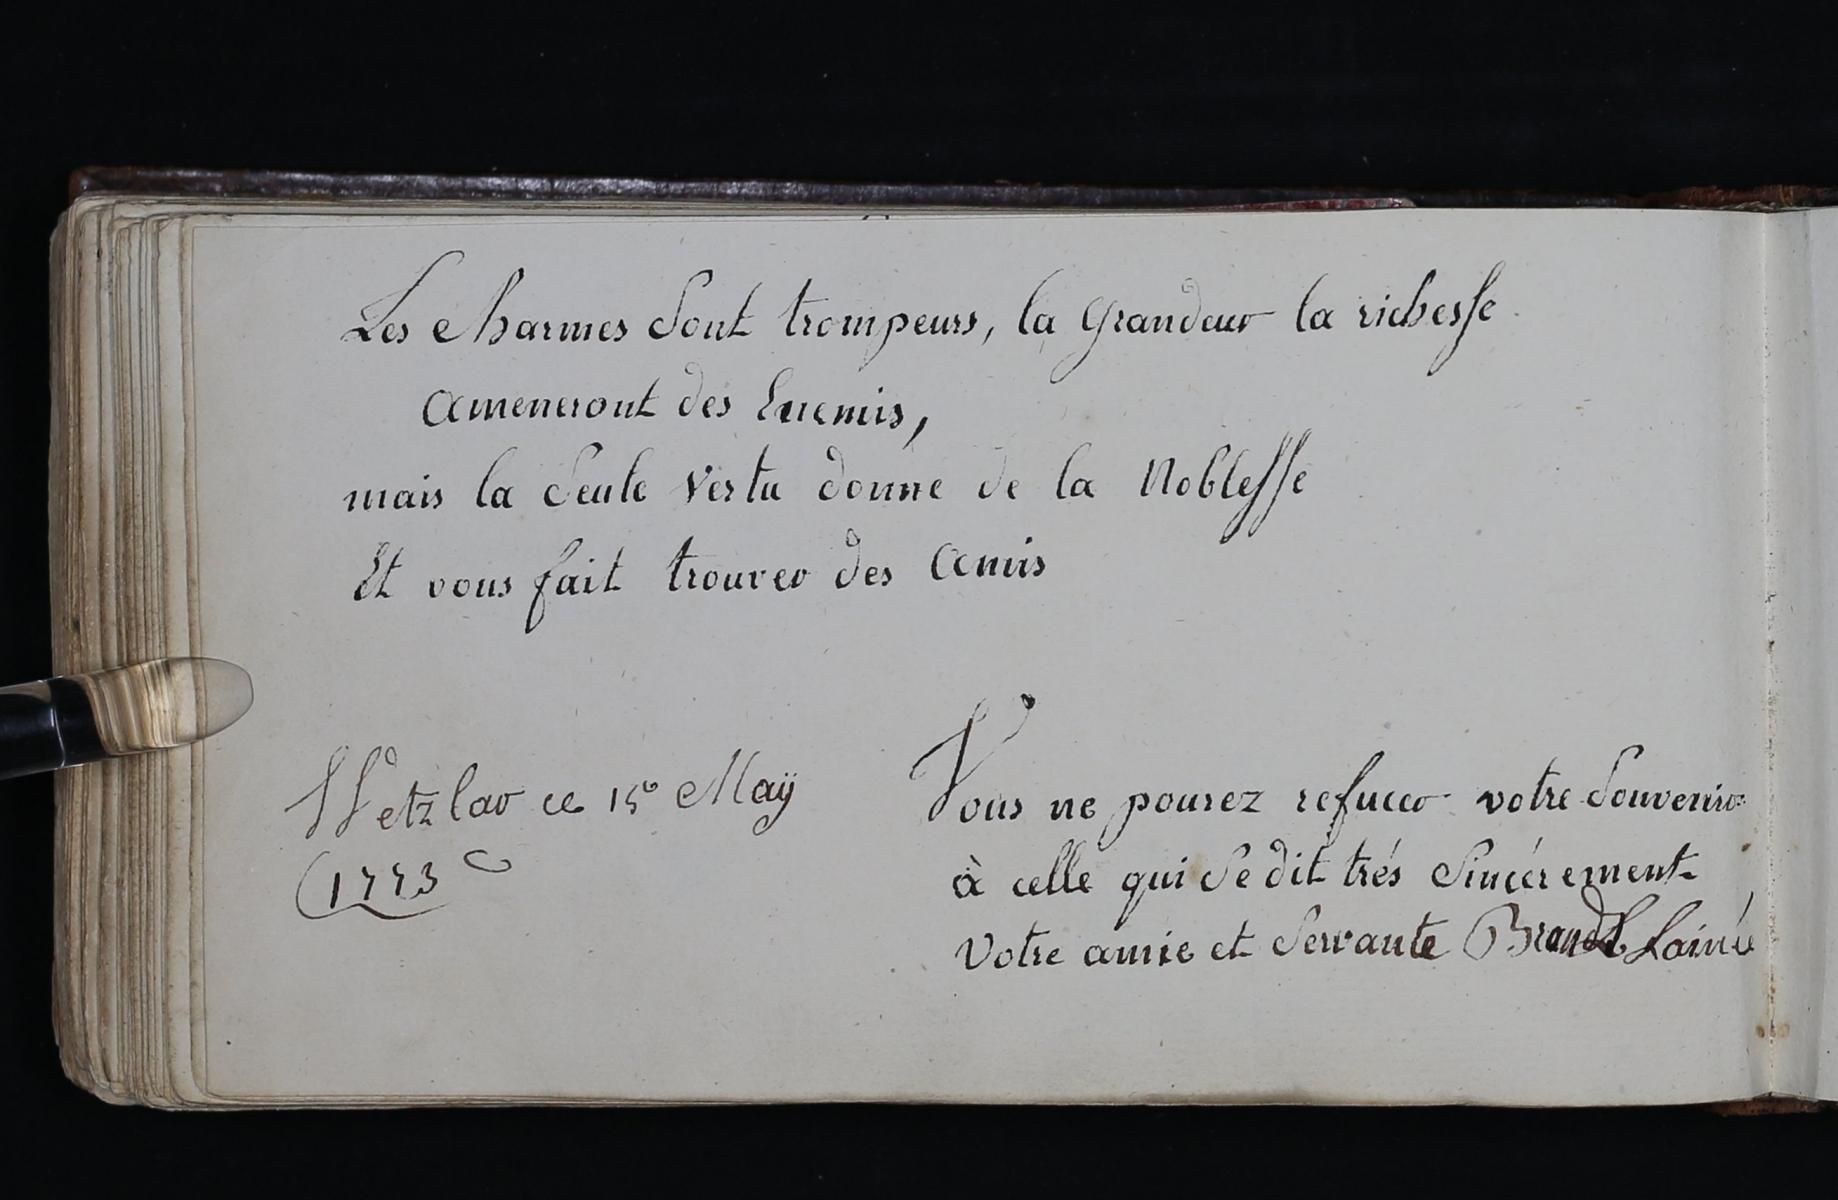 Les charmes sont trompeurs, la grandeur la richesse
ameneront des Enemis,
mais la seule Vertu donne de la Noblesse
Et vous fait trouver des Amis
Wetzlar ce 15e Maÿ
1773
Vous ne pourez refuser votre souvenir
à celle qui se dit trés sincérement
votre amie et servante Brandt Lainée